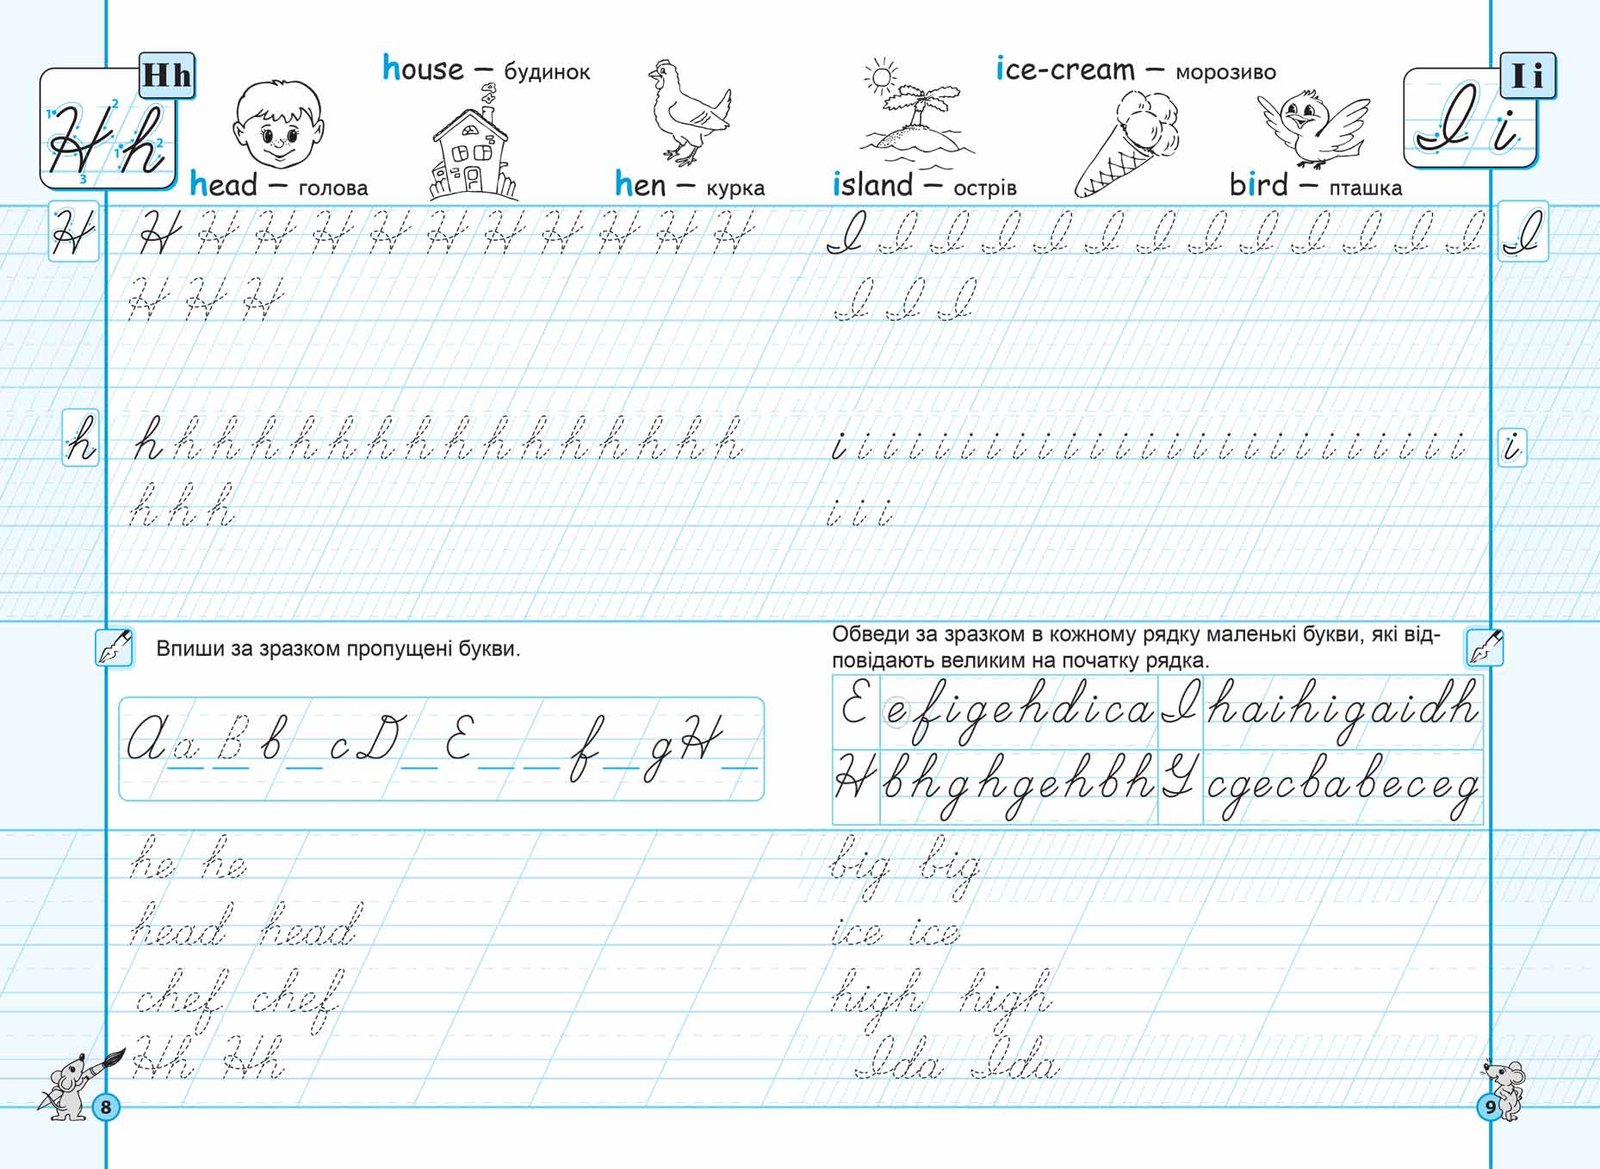 Hh
H h
1 2 3 1 2
house – будинок
head – голова
hen – курка
H H H H H H H H H H H H
H H H
h h h h h h h h h h h h h h h h h
h h h
Впиши за зразком пропущені букви.
A a B b _ c D _ E _ _ f _ g H _
he he
head head
chef chef
Hh Hh
8
ice-cream – морозиво
I i
I i
island – острів
bird – пташка
I I I I I I I I I I I I I I
I I I
i i i i i i i i i i i i i i i i i i i i i i i i i i
i i i
Обведи за зразком в кожному рядку маленькі букви, які від-
повідають великим на початку рядка.
E efigehdica I haihigaidh
H bhghgehbh G cgecbabeceg
big big
ice ice
high high
Ida Ida
9